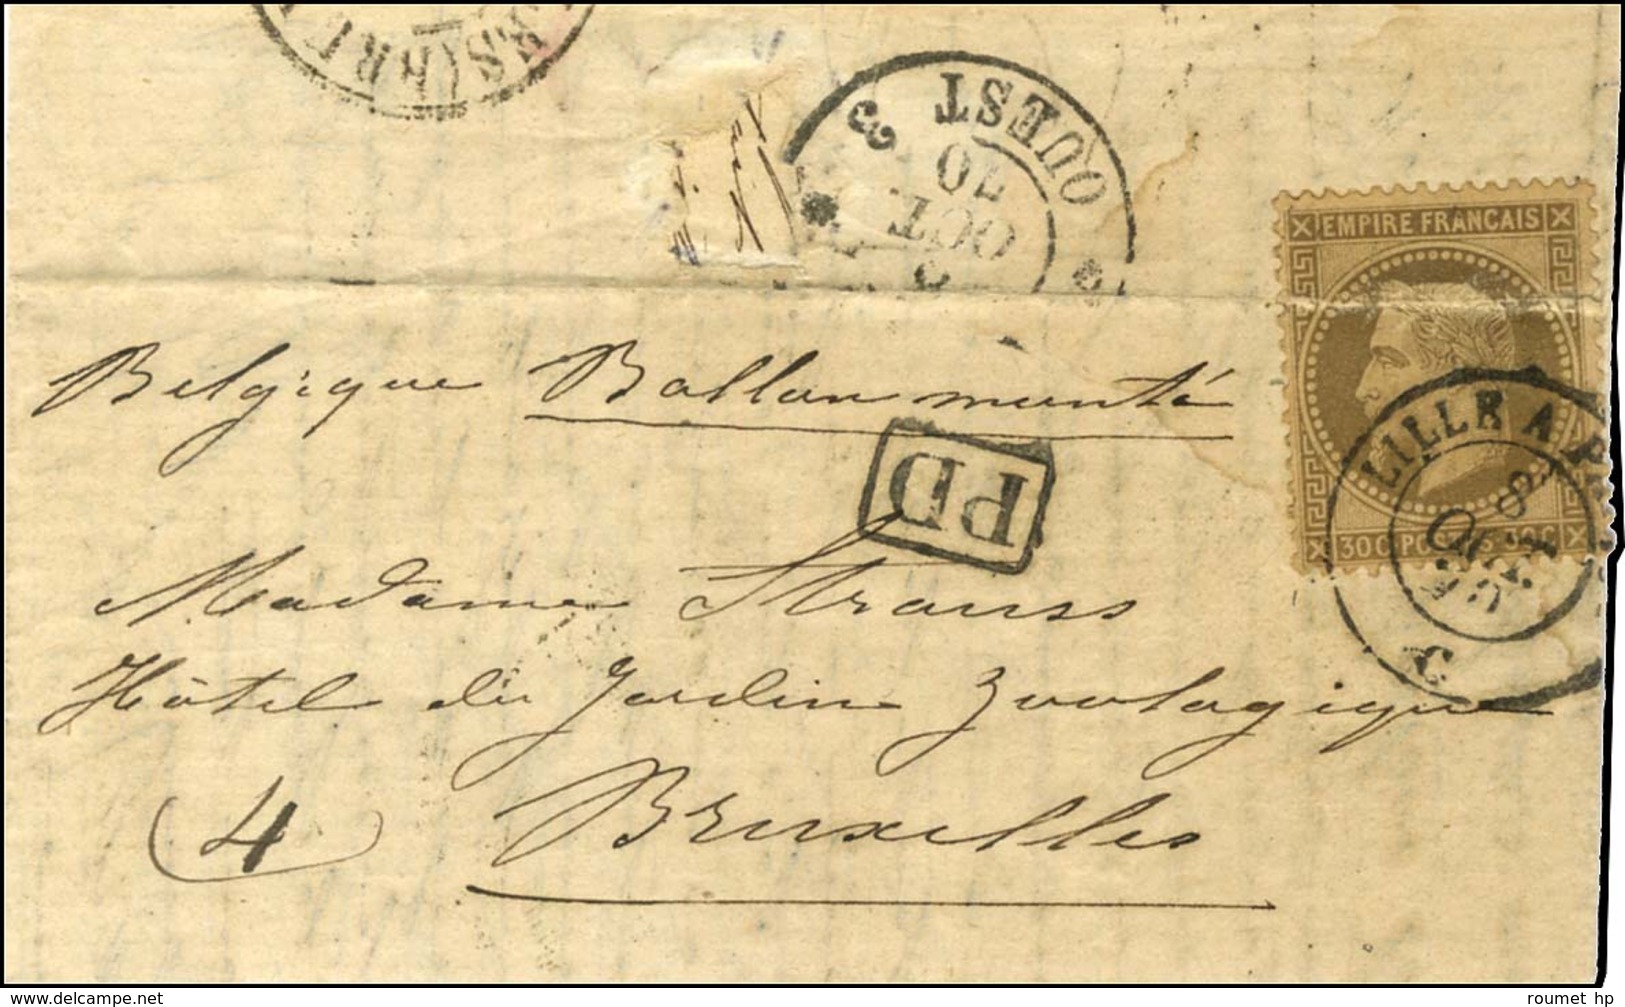 OUEST
3
OCT.
70
EMPIRE FRANÇAIS
30C POSTES 30C
LILLE A
8
OCT.
70
C
Belgique Ballon monté
PD
Madame Strauss
Hôtel du Jardin Zoologique
(4)
Bruxelles
www.delcampe.net
roumet hp